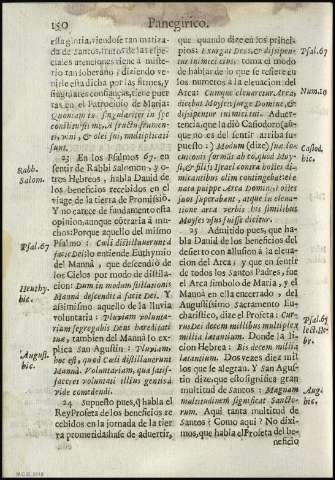 150 Panegirico.
esta gloria, viendose tan matiza-
da de Santos, frutos de las espe-
ciales atenciones viene à miste-
rio tan soberano; diziendo ve-
nirle esta dicha por las firmes, y
singulares confianças, tiene pues-
tas en el Patrocinio de Maria:
Quoniam tu singulariter in spe
constituisti me, à fructu frumen-
ti, vini, & olei sui, multiplicati
sunt.
23 En los Psalmos 67. en
Rabb. Salom.
sentir de Rabbi Salomon, y o-
tros Hebreos, habla David de
los beneficios recebidos en el
viage de la tierra de Promissiô.
Y no carece de fundamento esta
opinion, aunque côtraria à mu-
chos: Porque aquello del mismo
Psal. 67
Psalmo: Cœli distillaverunt à
facie Dei, lo entiende Euthymio
del Mannà, que descendiò de
los Cielos por modo de distila-
cion: Dum in modum stillationis
Euthy. bic.
Mannà descendit à facie Dei. Y
assimismo aquello de la lluvia
voluntaria: Pluviam volunta-
riam segregabis Deus hæreditati
tuæ, tambien del Mannà lo ex-
plica San Agustin: Pluviam
August. bic.
hoc est, quod Cœli distillaverunt
Mannà. Voluntariam, qua satis-
faceret voluntati illius gentis à
vide comedendi.
24 Supuesto pues, q̃ habla el
Rey Profeta de los beneficios re-
cebidos en la jornada de la tier-
ra prometida, hase de advertir,
que quando dize en los princi-
pios: Exurgat Deus, & dissipen-
Psal. 67
tur inimici eius, toma el modo
de hablar de lo que se refiere en
los numeros à la elevacion del
Arca: Cumque elevaretur Arca,
Num. 10
dicebat Moyses: surge Domine, &
dissipentur inimici tui. Adver-
tencia, que la diò Casiodoro (aũ-
que no es del sentir arriba su-
puesto:) Modum (dize) sua lo-
Casiod. bic.
cutionis formàs ab eo, quod Moy-
ses, & filij Israel contra hostes di-
micantibus olim contingebat: e-
nata puppe Arca Domini, hostes
suos superabant, atque in eleva-
tione arca verbis his similibus
Moyses usus fuisse dicitur.
25 Admitido pues, que ha-
bla David de los beneficios del
desierto con allusion à la eleva-
cion del Arca; y que en sentir
de todos los Santos Padres, fue
el Arca simbolo de Maria, y el
Mannà en ella encerrado, del
Augustissimo Sacramento Eu-
charistico, dize el Profeta: Cur-
Psal. 67 lect. Hebr.
rus Dei decem millibus multiplex
millia lætantium. Donde la li-
cion Hebrea: Bis decem millia
lætantium. Dos vezes diez mil
los que se alegran. Y San Agus-
tin dize, que esto significa gran
multitud de Santos: Magnam
Aug. bic.
multitudinem significat Sancto-
rum. Aqui tanta multitud de
Santos? Como aqui? No dixi-
mos, que habla el Profeta del be-
neficio